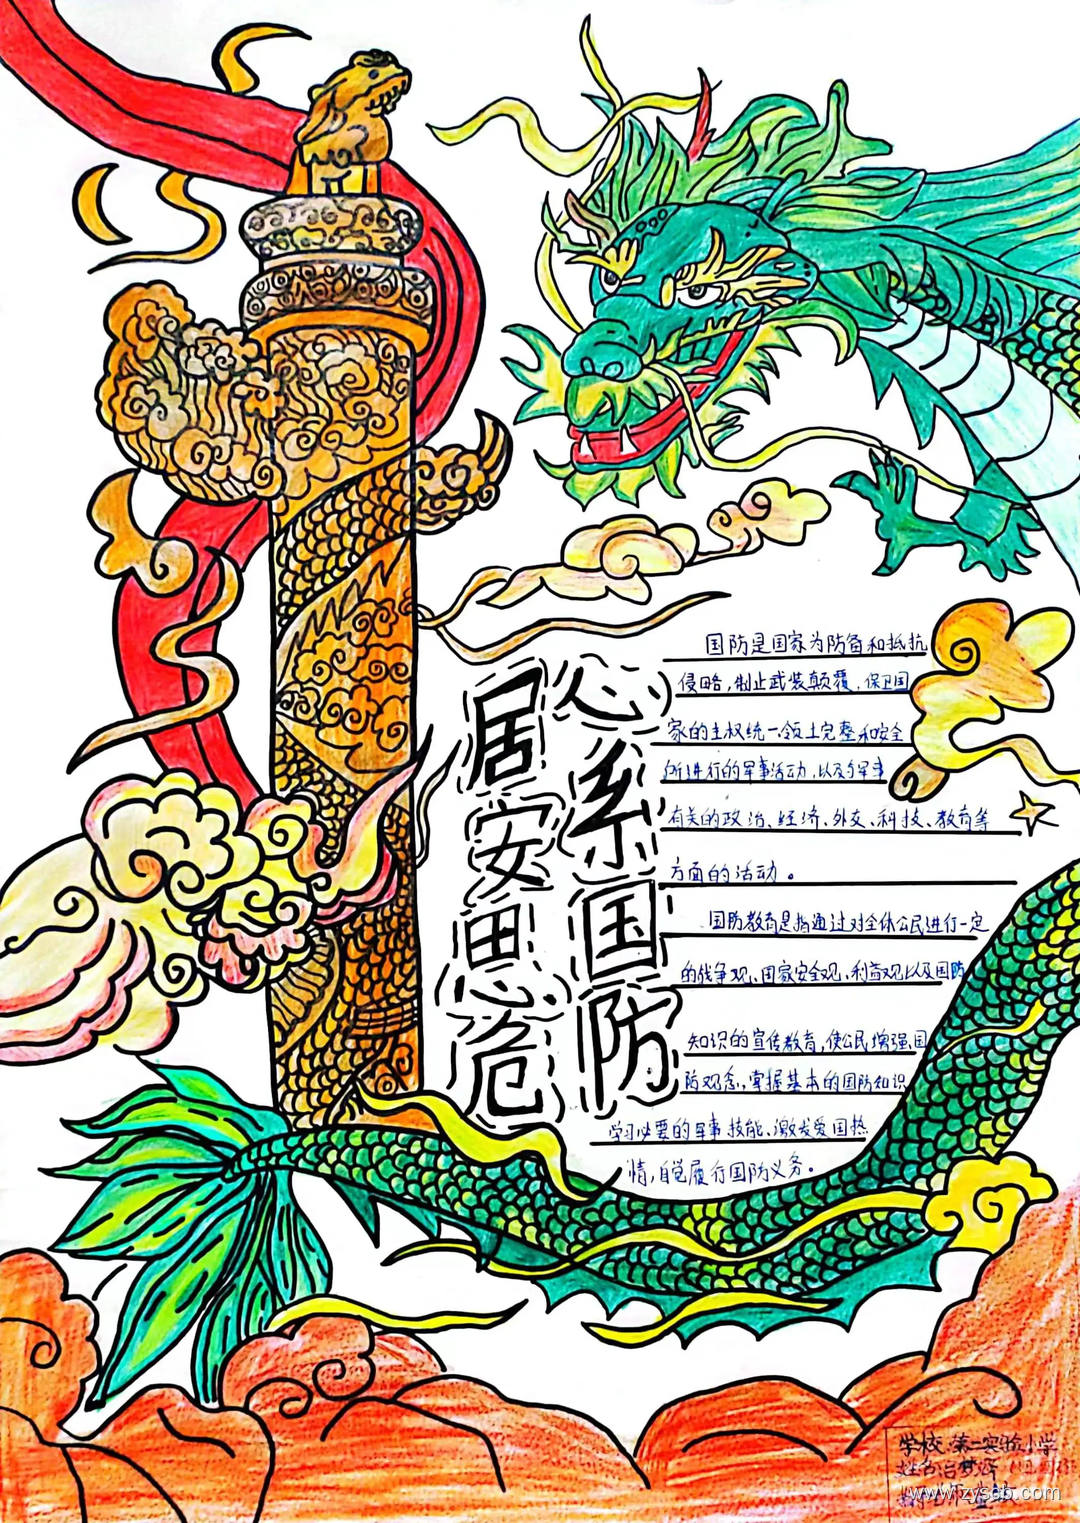 心系国防
居安思危
国防是国家为防备和抵抗
侵略,制止武装颠覆,保卫国
家的主权统一领土完整和安全
所进行的军事活动,以及与军事
有关的政治、经济、外交、科技、教育等
方面的活动。
国防教育是指通过对全体公民进行一定
的战争观、国家安全观、利益观以及国防
知识的宣传教育,使公民增强国
防观念,掌握基本的国防知识
学习必要的军事技能、激发爱国热
情,自觉履行国防义务。
学校:第二实验小学
姓名:
www.zyseb.com